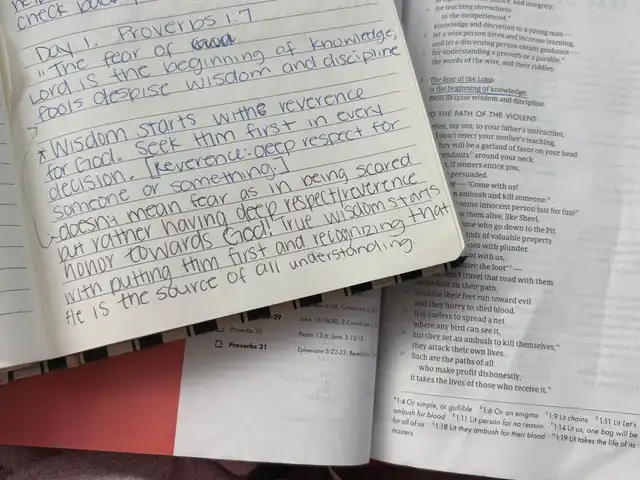 check back
Day 1. Proverbs 1:7
"The fear of
Lord is the beginning of knowledge,
fools despise wisdom and discipline
*Wisdom starts with reverence
for God. Seek Him first in every
decision. [Reverence: deep respect for
someone or something.]
- doesn't mean fear as in being scared
but rather having deep respect/reverence
honor towards God! True wisdom starts
with putting Him first and recognizing that
He is the source of all understanding.
for teaching shrewdness
to the inexperienced,
knowledge and discretion to a young man—
let a wise person listen and increase learning,
and let a discerning person obtain guidance—
for understanding a proverb or a parable,
the words of the wise, and their riddles.
The fear of the LORD
is the beginning of knowledge;
despise wisdom and discipline.
THE PATH OF THE VIOLENT
my son, to your father's instruction,
don't reject your mother's teaching,
they will be a garland of favor on your head
around your neck.
if sinners entice you,
persuaded.
"Come with us!
ambush and kill someone.
some innocent person just for fun!
them alive, like Sheol,
who go down to the Pit.
kinds of valuable property
with plunder.
with us,
the loot"—
don't travel that road with them
foot on their path,
because their feet run toward evil
and they hurry to shed blood.
It is useless to spread a net
where any bird can see it,
but they set an ambush to kill themselves;
they attack their own lives.
Such are the paths of all
who make profit dishonestly;
it takes the lives of those who receive it.
1:4 Or simple, or gullible 1:6 Or an enigma 1:9 Lit chains 1:11 Lit Let's
ambush for blood 1:11 Lit person for no reason 1:14 Lit us; one bag will be
for all of us 1:18 Lit they ambush for their blood 1:19 Lit takes the life of its
masters
Proverbs 30
Proverbs 31
Psalm 12:6; John 3:12-13
Ephesians 5:22-33;